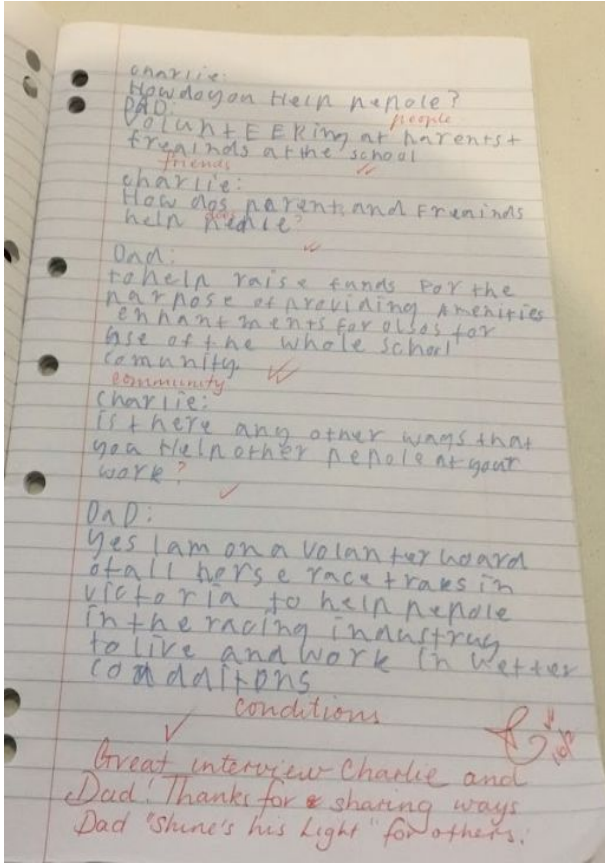 charlie:
How do you Help nepole?
DAD:
people
VoluntEERing at parents +
freainds at the school
friends
charlie:
How dos parents and Freninds
help
Dad:
to help raise funds For the
parpose of providing Amenities
enhantments for
use of the whole school
comunity.
community
charlie:
is there any other ways that
you Help other pepole at your
work?
DaD:
yes I am on a volanter board
of all horse race traks in
victoria to help pepole
in the racing industray
to live and work in better
conditions
Great interview Charlie and
Dad! Thanks for sharing ways
Dad "Shine's his Light" for others.